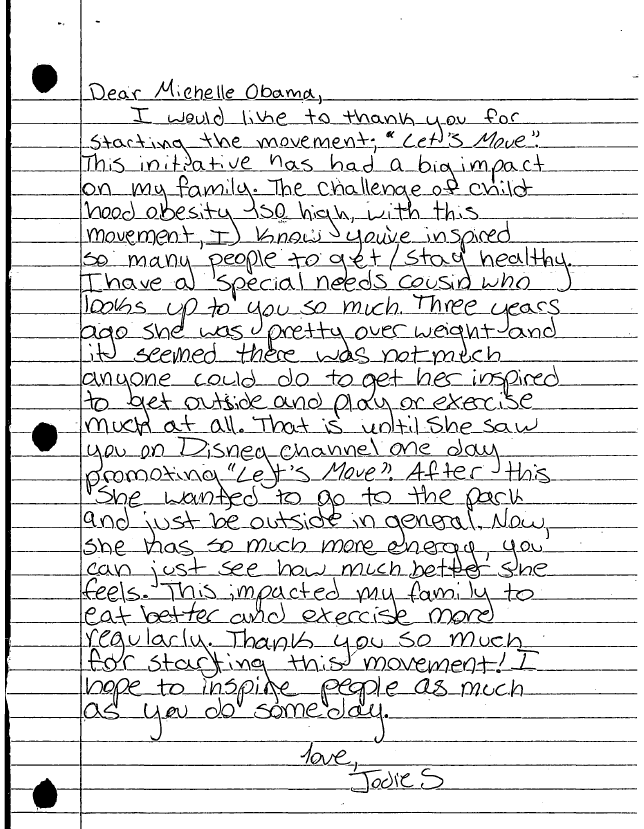 Dear Michelle Obama,
I would like to thank you for
starting the movement; "Let's Move".
This initiative has had a big impact
on my family. The challenge of child
hood obesity so high, with this
movement, I know you've inspired
so many people to get/stay healthy.
I have a special needs cousin who
looks up to you so much. Three years
ago she was pretty over weight and
it seemed there was not much
anyone could do to get her inspired
to get outside and play or exercise
much at all. That is until she saw
you on Disney channel one day
promoting "Let's Move". After this
she wanted to go to the park
and just be outside in general. Now,
she has so much more energy, you
can just see how much better she
feels. This impacted my family to
eat better and exercise more
regularly. Thank you so much
for starting this movement! I
hope to inspire people as much
as you do someday.
love,
Jodie S